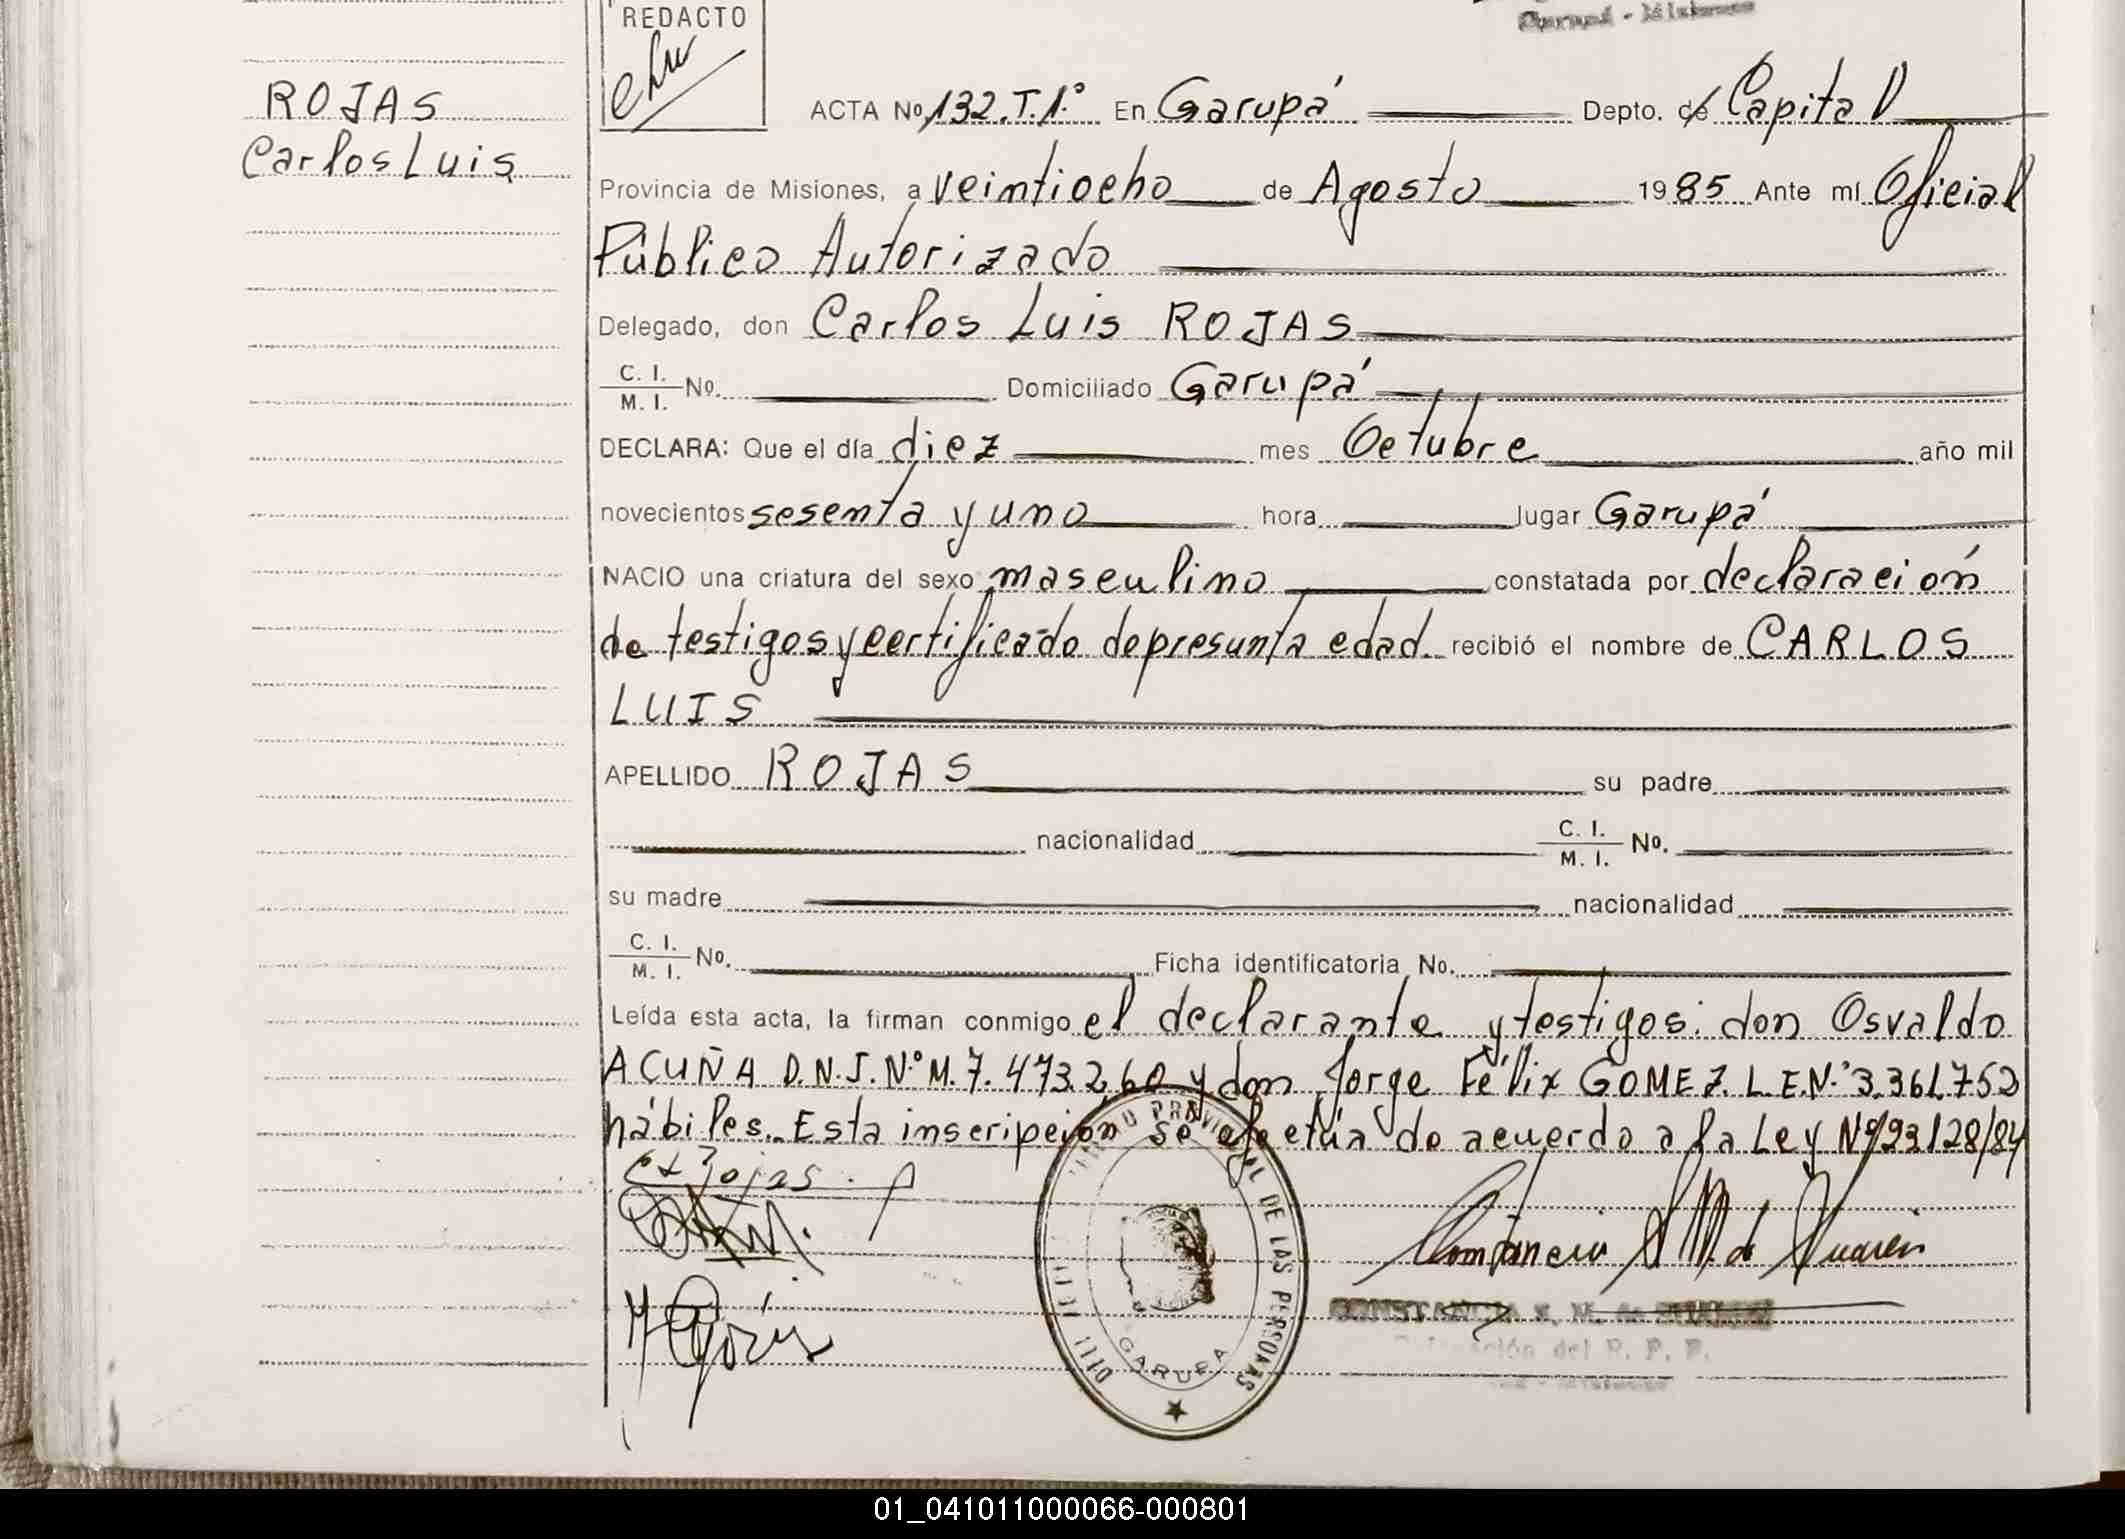 REDACTO
Garupá - Misiones
ROJAS
Carlos Luis
ACTA No. 132.T.1.° En Garupá Depto. de Capital
Provincia de Misiones, a veintiocho de Agosto 1985 Ante mí Oficial
Público Autorizado
Delegado, don Carlos Luis ROJAS
C. I.
M. I. No. Domiciliado Garupá
DECLARA: Que el día diez mes Octubre año mil
novecientos sesenta y uno hora lugar Garupá
NACIO una criatura del sexo masculino constatada por declaración
de testigos y certificado de presunta edad. recibió el nombre de CARLOS
LUIS
APELLIDO ROJAS su padre
nacionalidad C. I.
M. I. No.
su madre nacionalidad
C. I.
M. I. No. Ficha identificatoria No.
Leída esta acta, la firman conmigo el declarante y testigos: don Osvaldo
ACUÑA D.N.I. N° M. 7.473.260 y don Jorge Félix GOMEZ. L.E.N.° 3.361.752
hábiles. Esta inscripción se efectúa de acuerdo a la Ley N° 23128/84
Rojas.
PROVINCIAL DE LAS PERSONAS
GARUPA
CONSTANCIA
del R. P. P.
01_041011000066-000801